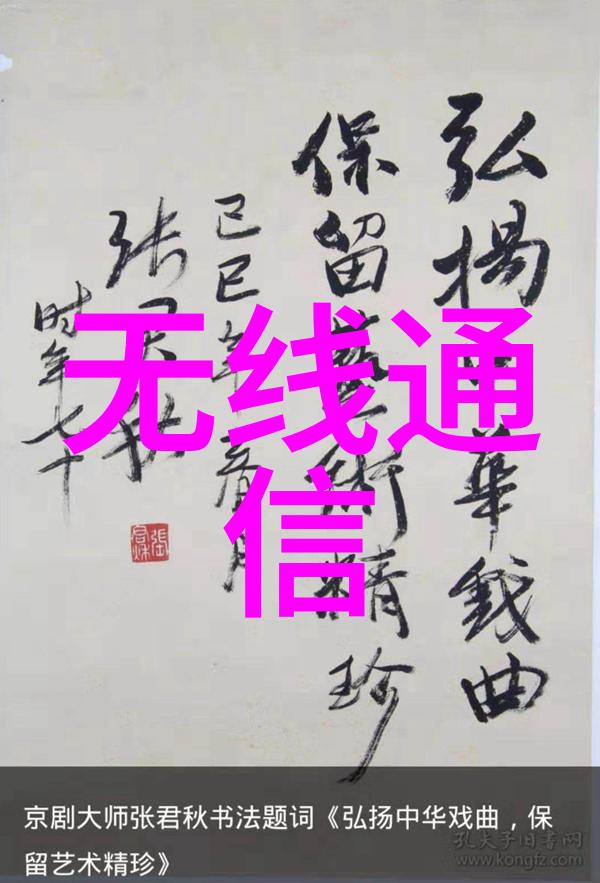 弘揚中華戲曲
保留藝術精珍
己巳年春月
张君秋
时年七十
張君秋
无线通
信
京剧大师张君秋书法题词《弘扬中华戏曲，保
留艺术精珍》
孔夫子旧书网
www.kongfz.com